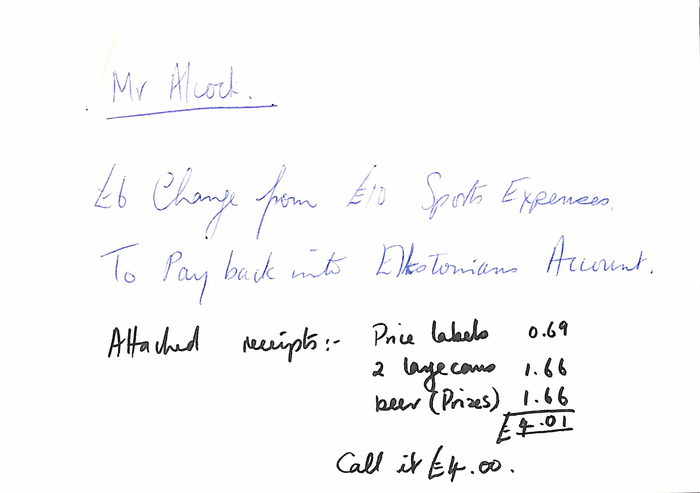 Mr Alcock.
£6 Change from £10 Sports Expenses.
To Pay back into Account.
Attached receipts:- Price labels 0.69
2 large cans 1.66
beer (Prizes) 1.66
£4.01
Call it £4.00.